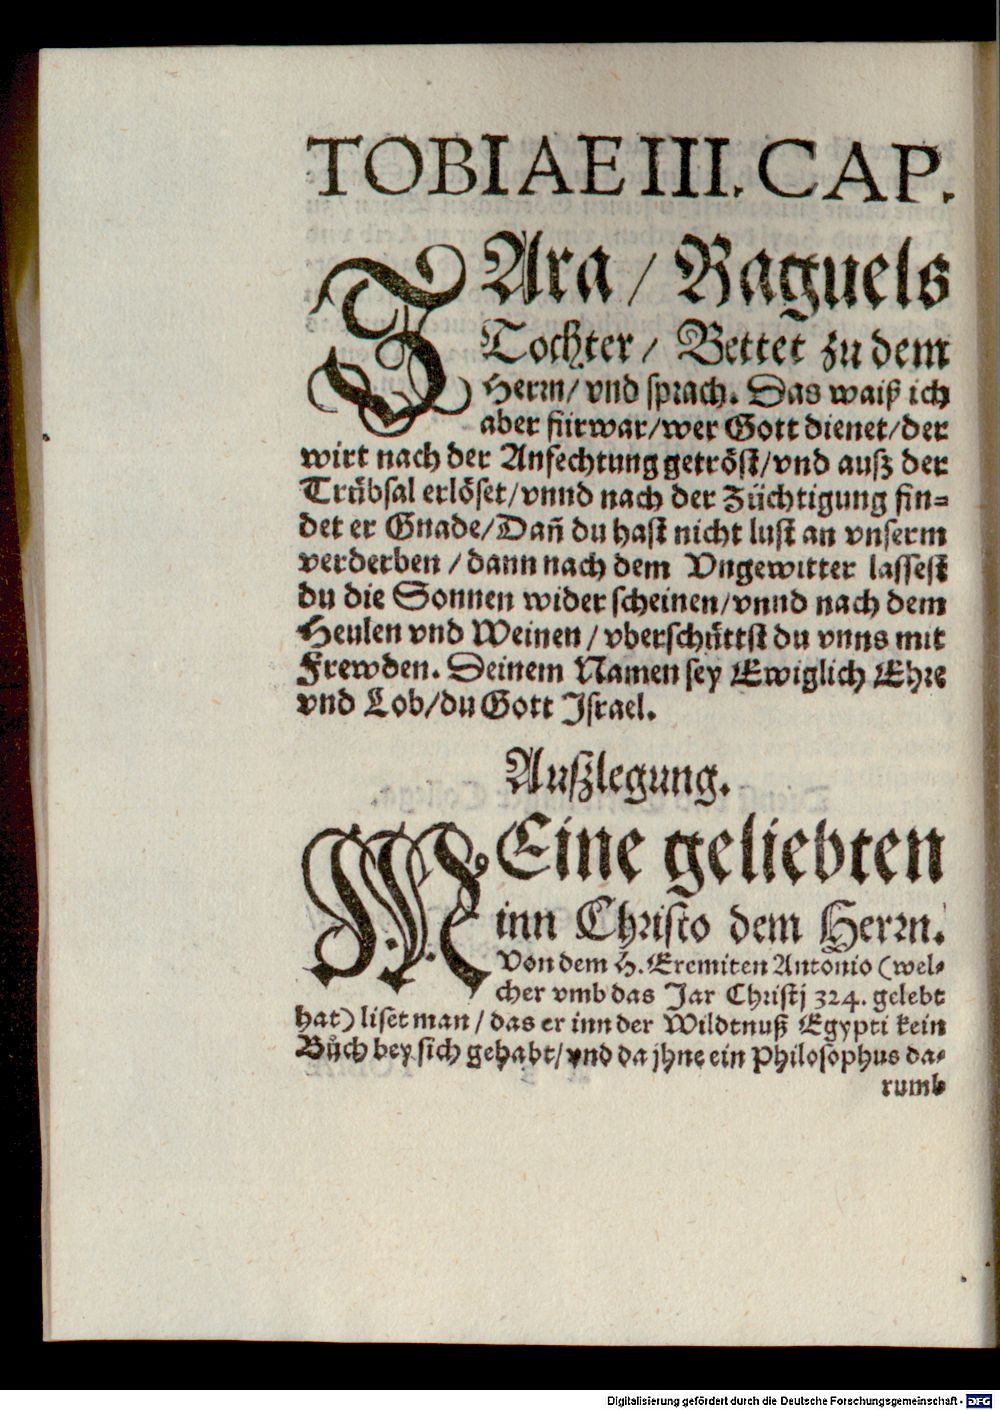 TOBIAE III. CAP.
SAra / Raguels
Tochter / Bettet zu dem
Herrn/ vnd sprach. Das waiß ich
aber fürwar/wer Gott dienet/der
wirt nach der Anfechtung getröst/vnd ausz der
Trübsal erlöset/vnnd nach der Züchtigung fin=
det er Gnade/Dañ du hast nicht lust an vnserm
verderben /dann nach dem Vngewitter lassest
du die Sonnen wider scheinen/vnnd nach dem
Heulen vnd Weinen / vberschüttst du vnns mit
Frewden. Deinem Namen sey Ewiglich Ehre
vnd Lob/du Gott Israel.
Auszlegung.
MEine geliebten
inn Christo dem Herrn.
Von dem H. Eremiten Antonio (wel-
cher vmb das Jar Christj 324. gelebt
hat) liset man / das er inn der Wildtnuß Egypti kein
Bůch bey sich gehabt/vnd da jhne ein Philosophus da-
rumb
Digitalisierung gefördert durch die Deutsche Forschungsgemeinschaft - DFG